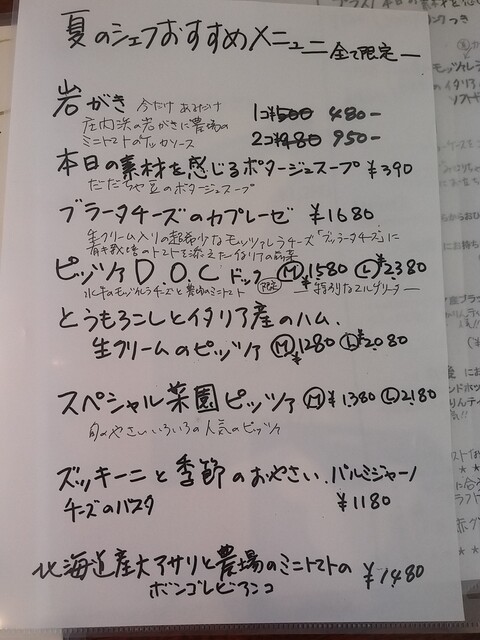 夏のシェフおすすめメニュー 全て限定ー
岩がき 今だけあるだけ 1コ ¥500 480-
庄内浜の岩がきに農場の
ミニトマトのケッカソース 2コ ¥980 950-
本日の素材を感じるポタージュスープ ¥390
だだちゃ豆のポタージュスープ
ブラータチーズのカプレーゼ ¥1680
生クリーム入りの超希少なモッツァレラチーズ「ブッラータチーズ」に
有機栽培のトマトを添えたイタリアの前菜
ピッツァ D.O.C ドック Ⓜ¥1580 Ⓛ¥2380
水牛のモッツァレラチーズと農場のミニトマト 限定 ー特別なマルゲリーター
とうもろこしとイタリア産のハム、
生クリームのピッツァ Ⓜ¥1280 Ⓛ¥2080
スペシャル菜園ピッツァ Ⓜ¥1380 Ⓛ2180
旬のやさいいろいろの人気のピッツァ
ズッキーニと季節のおやさい、パルミジャーノ
チーズのパスタ ¥1180
北海道産大アサリと農場のミニトマトの ¥1480
ボンゴレビアンコ